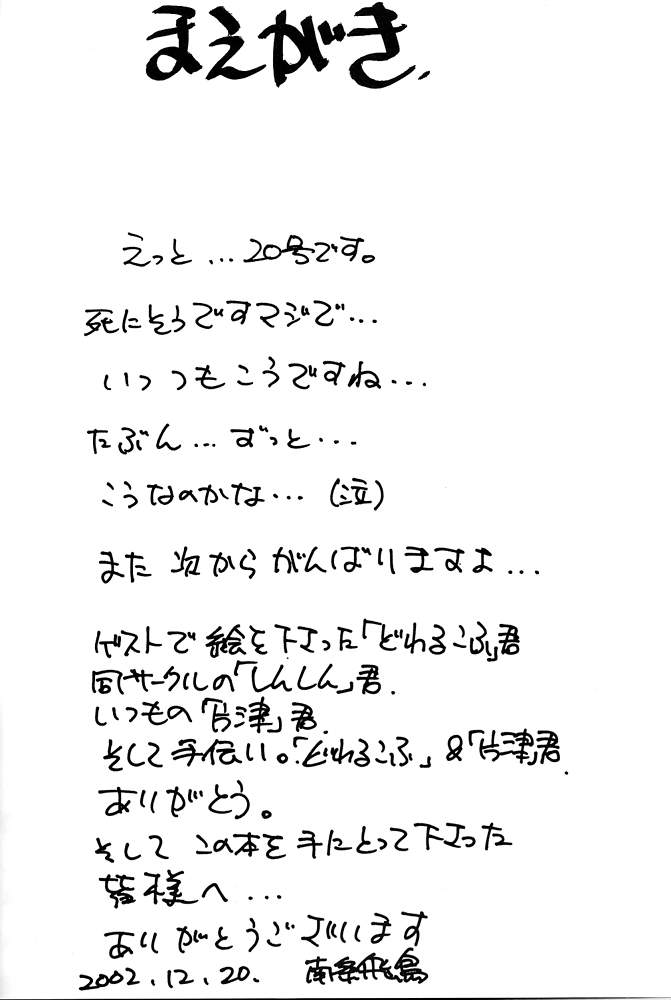 まえがき.
えっと…20号です。
死にそうですマジで…
いつもこうですね…
たぶん…ずっと…
こうなのかな…(泣)
また次からがんばりますよ…
ゲストで絵を下さった「どわるこふ」君
同サークルの「しんしん」君.
いつもの「片津」君.
そして手伝い。「どわるこふ」&「片津」君.
ありがとう。
そしてこの本を手にとって下さった
皆様へ…
ありがとうございます
2002.12.20. 南条飛鳥